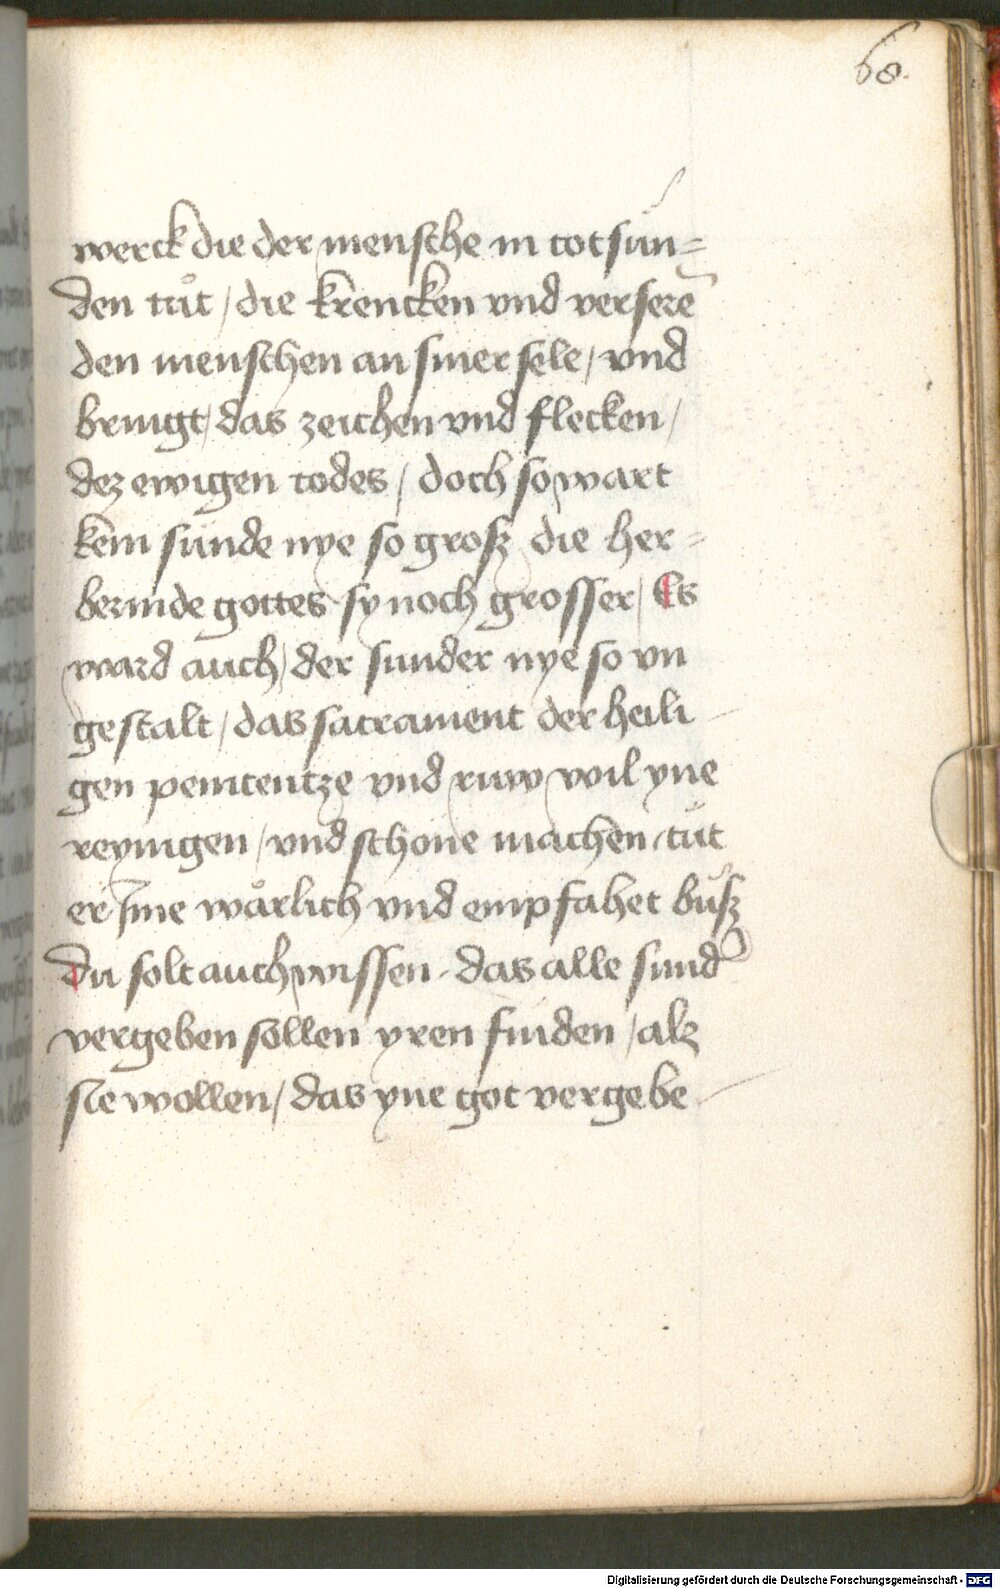 68.
werck die der mensche in totsun=
den tůt / die krencken vnd verserē
den menschen an siner sele / vnd
bringt / das zeichen vnd flecken /
dez ewigen todes / doch so wart
kein sünde nye so grosz die her=
bermde gottes sy noch grosser / Es
ward auch / der sunder nye so vn
gestalt / das sacrament der heili
gen penitentze vnd ruw wil yne
reynigen / vnd schone machen tůt
er Ime wårlich vnd empfahet bůsz
du solt auch wissen das alle sund̕
vergeben sollen yren finden / alz
sie wollen / das yne got vergebe
Digitalisierung gefördert durch die Deutsche Forschungsgemeinschaft - DFG